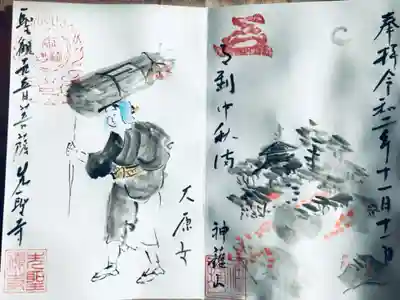 奉拝 令和二年十一月十一日
月到中秋満
神護山
大原女
聖観世音菩薩 先聖寺